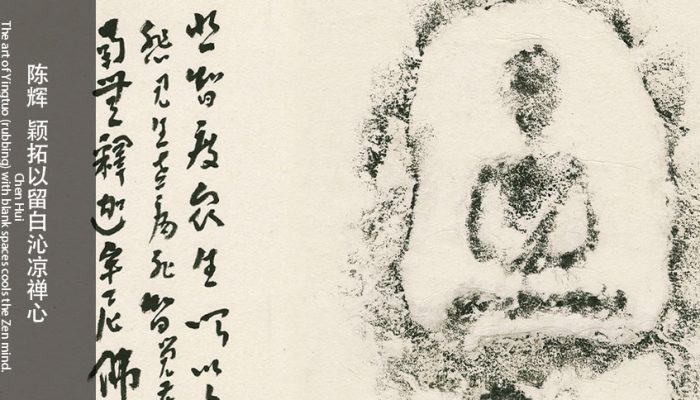 陈辉 颖拓以留白沁凉禅心
Chen Hui
The art of Yingtuo (rubbing) with blank spaces cools the Zen mind.
悲智度众生 以
见生老病死
南無釋迦牟尼佛